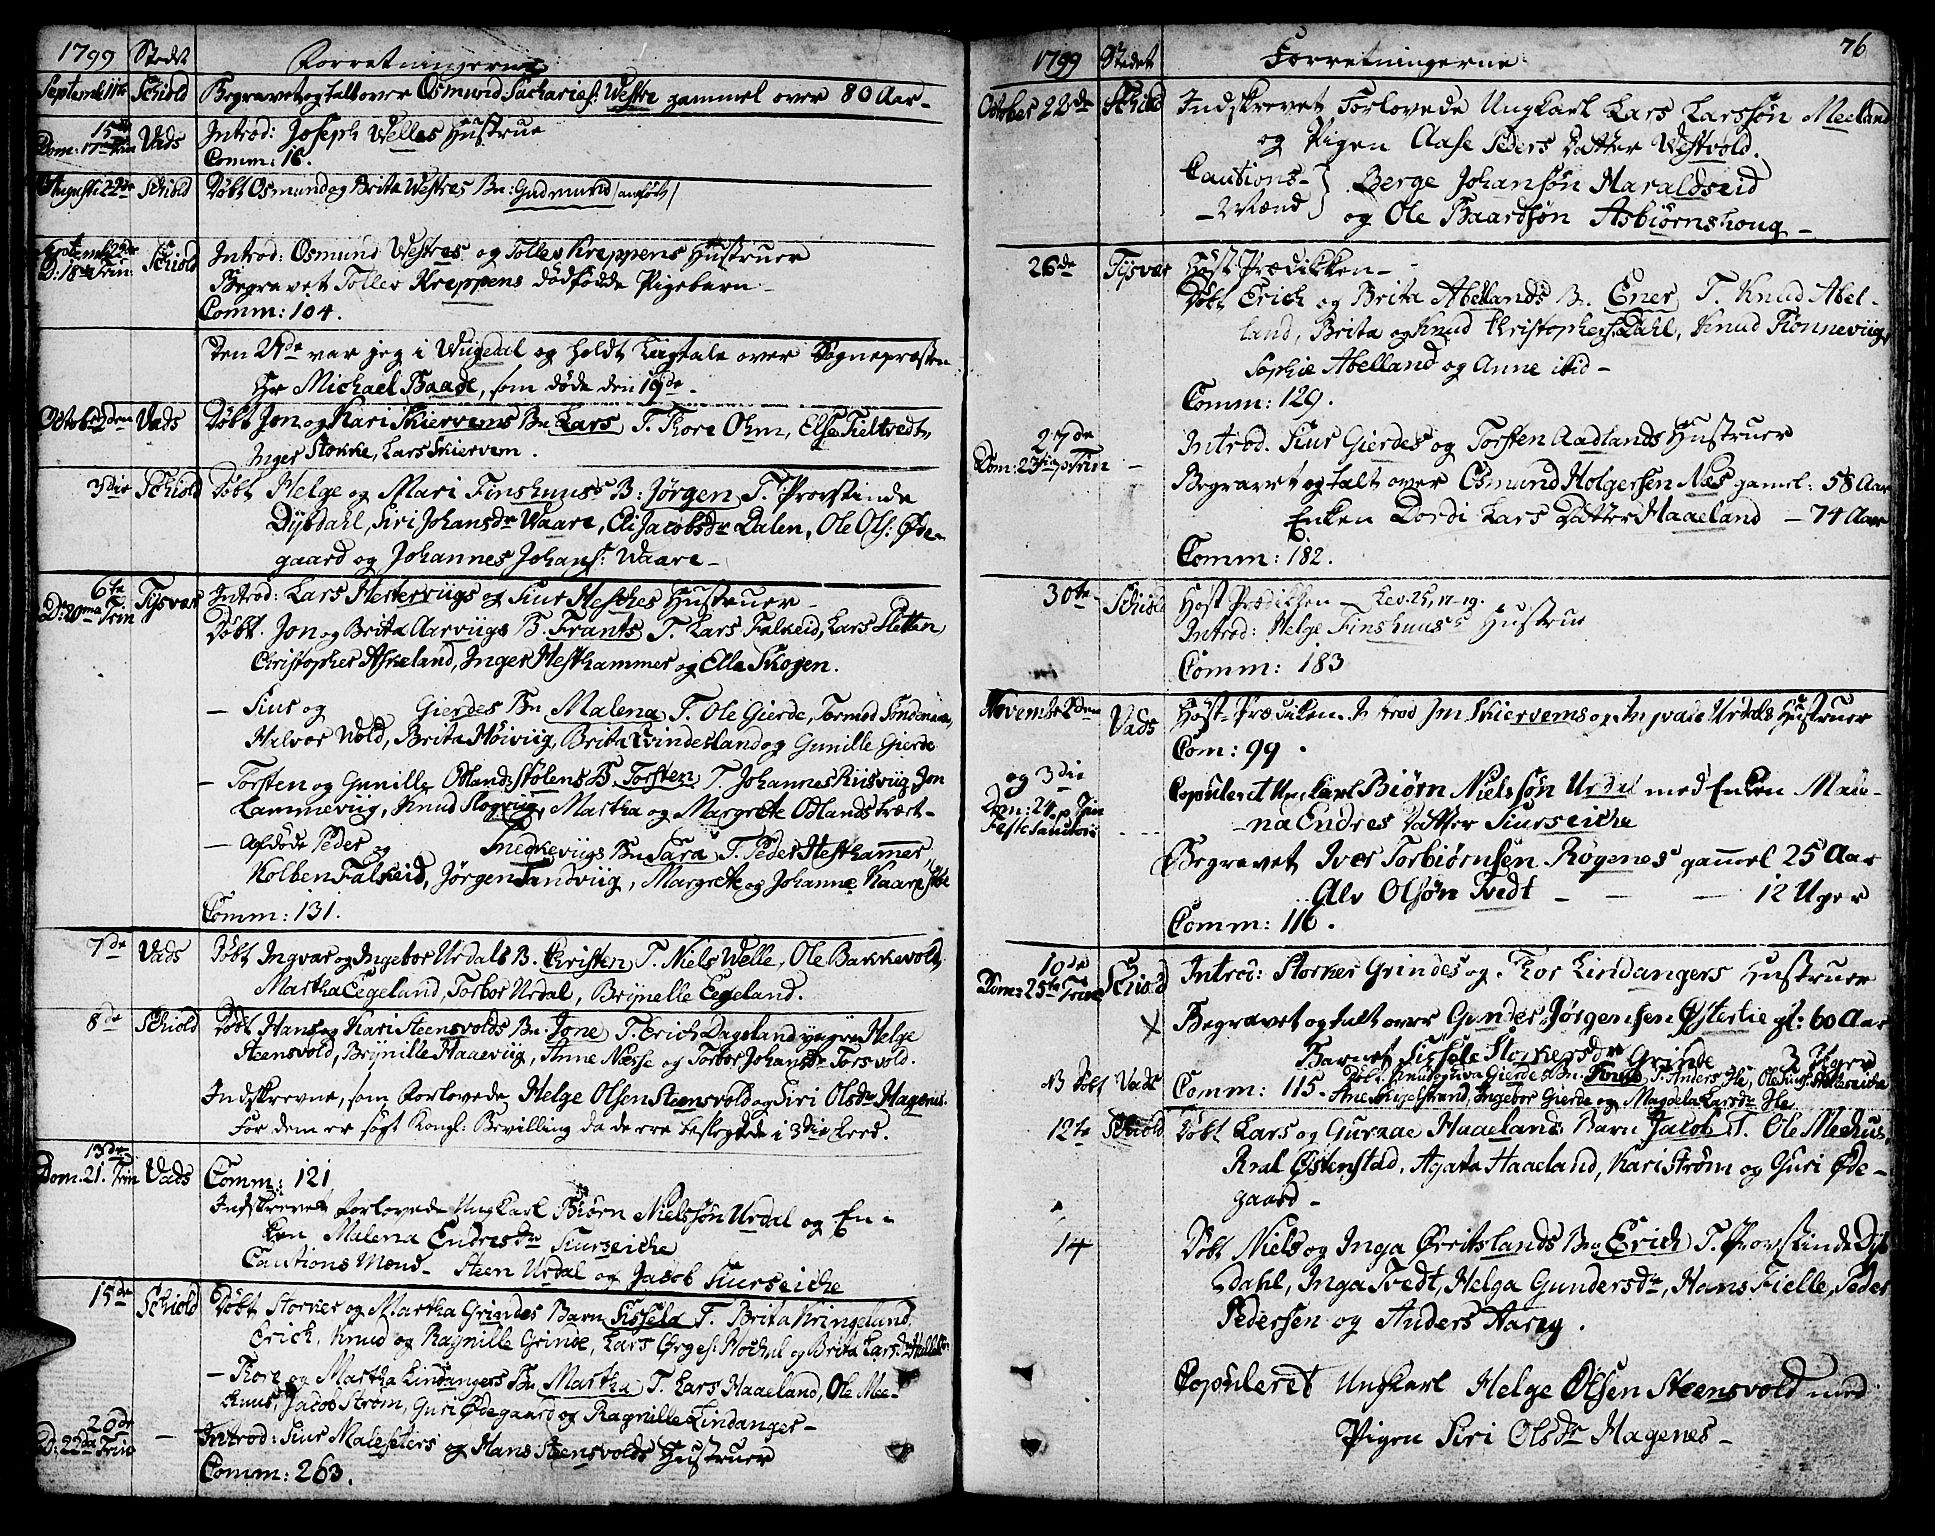 1799 Stedet Forretningerne
Septemb 11te Schiold Begravet og talt over Osmund Sachariæs: Westre gammel over 80 Aar
15de Introd: Joseph Welles Hustrue
Dom: 17de Trin Vads Comm: 16.
Augusti 22de Schiold Døbt Osmund og Brita Westres Bn: Gudmund /anført/
Septemb 22de Introd: Osmund Westres og Tolles Kreppens Hustruer
D: 18de Trin: Schiold Begravet Tolles Kreppens dødfødde Pigebarn
Comm: 104.
Den 24de var jeg i Wigedal og holdt Liigtale over Sognepræsten
Hr Michael Baade, som døde den 19de
Octobr 2den Vads Døbt Jon og Kari Skiervems Bn Lars T. Tore Ohm, Else Tieltvedt,
Inger Stokke, Lars Skiervem.
3die Schiold Døbt Helge og Mari Finshuuss B: Jørgen T. Provstinde
Dybdahl, Siri Johansdr Waare, Eli Jacobsdr Dalen, Ole Ols: Øde-
gaard og Johannes Johans: Waare
6te Introd: Lars Hesterviigs og Siur Hesthes Hustruer
D: 20ma Trin Tysvær Døbt. Jon og Brita Aarviigs B. Frants T. Lars Falkeid, Lars Sletten
Christopher Askeland, Inger Hesthammer og Elle Skogen.
– Siur og Gierdes Bn Malena T. Ole Gierde, Tormod Søndenaae,
Halvor Vold, Brita Høiviig, Brita Qvindesland og Gunille Gierde
– Torsten og Gunille Odland:Stølens B Torsten T. Johannes Riisviig, Jon
Lammeviig, Knud Slogviig, Martha og Margrete Odlands Træet
– Afdøde Peder og Snedkeviigs Bn Sara T. Peder Hesthamer,
Kolben Falkeid, Jørgen Sandviig, Margrete og Johanne Kaarestøe
Comm: 131.
7de Vads Døbt Ingvar og Ingebor Urdals B. Christen T. Niels Welle, Ole Bakkevold,
Martha Eegeland, Torbor Urdal, Brynelle Eegeland.
8de Schiold Døbt Hans og Kari Steensvolds Bn: Jone T. Erich Dagsland yngre Helge
Steensvold, Brynille Haaeviig, Anne Næsse og Torbor Johansdr Torsvold.
Indskrevne, som Forlovede Helge Olsen Steensvold og Siri Olsdr Hagenes.
For dem er søgt Kongl: Bevilling da de ere beslegtede i 3die Leed.
13de Comm: 121
Dom. 21. Trin Vads Indskrevet Forlovede Ungkarl Biørn Nielssøn Urdal og En-
ken Malena Endresdr Siurseiche
Cautions Mænd – Steen Urdal og Jacob Siurseiche
15de Schiold Døbt Storker og Martha Grindes Barn Sisseld T. Brita Kringeland,
Erich, Knud og Ragnille Grinde, Lars Ørges: Stochel og Brita Larsdr
– Tore og Martha Lindangers Bn Martha T. Lars Haaeland, Ole Mee-
huus, Jacob Strøm, Guri Ødegaard og Ragnille Lindanger
20de Introd: Siur Maleseters og Hans Steensvolds Hustruer
D: 22da Trin – Comm: 263.
76
1799 Stedet Forretningerne
October 22de Schiold Indskrevet Forlovede Ungkarl Lars Larssøn Meeland
og Pigen Aase Peders Datter Westvold.
Cautions- } Berge Johansøn Haraldseid
-Mænd } og Ole Baardsøn Asbiørnshoug
26de Tysvær Høst-Prædikken
Døbt Erich og Brita Abellands Bn. Ener, T. Knud Abel-
land, Brita og Knud Christophers: Dahl, Knud Fionneviig,
Sophie Abelland og Anne ibid
Comm: 129.
27de Introd. Siur Gierdes og Torsten Aadlands Hustruer
Dom: 23tia p Trin – Begravet og talt over Osmund Holgersen Næs gamel: 58 Aar
Enken Dordi Lars Datter Haaeland – 74 Aar
Comm: 182.
30te Schiold Høst Prædikken – Lev. 25, 17-19.
Introd: Helge Finshuuss Hustrue
Comm: 183
Novembr 2den Vads Høst-Prædiken. Introd Jon Skiervems og Ingvald Urdals Hustruer
Com: 99.
og 3die Copuleret Un: Carl Biørn Nielssøn Urdal med Enken Male-
Dom: 24 p Trin na Endres Datter Siurseiche
Begravet Iver Torbiørnsen Røgenes gammel 25 Aar
Alv Olsøn Tvedt – – – 12 Uger
Comm: 116.
10de Introd: Storker Grindes og Tor Lindangers Hustruer
Dom: 25te Trin Schiold
Begravet og talt over Gunder Jørgensen Østerlie gl: 60 Aar
Barnet Sissele Storkersdr Grinde 3 Uger
Comm: 115.
13 Døbt Vads Døbt Knud og Siva Gierdes Bn: T. Anders Ile, Ole
Ane Engelstrand, Ingebor Gierde og Magdela Larsdr Ile
12te Schiold Døbt Lars og Guraae Haaeland: Barn Jacob T. Ole Meehus,
Roal Østenstad, Agata Haaeland, Kari Strøm og Guri Øde-
gaard –
14 Døbt Niels og Inga Øritslands Bn Erich T. Provstinde Dyb
Dahl, Inga Tvedt, Helga Gundersdr, Hans Fielle, Peder
Pedersen og Anders Aarey.
Copuleret Ungkarl Helge Olsen Steensvold med
Pigen Siri Olsdr Hagenes